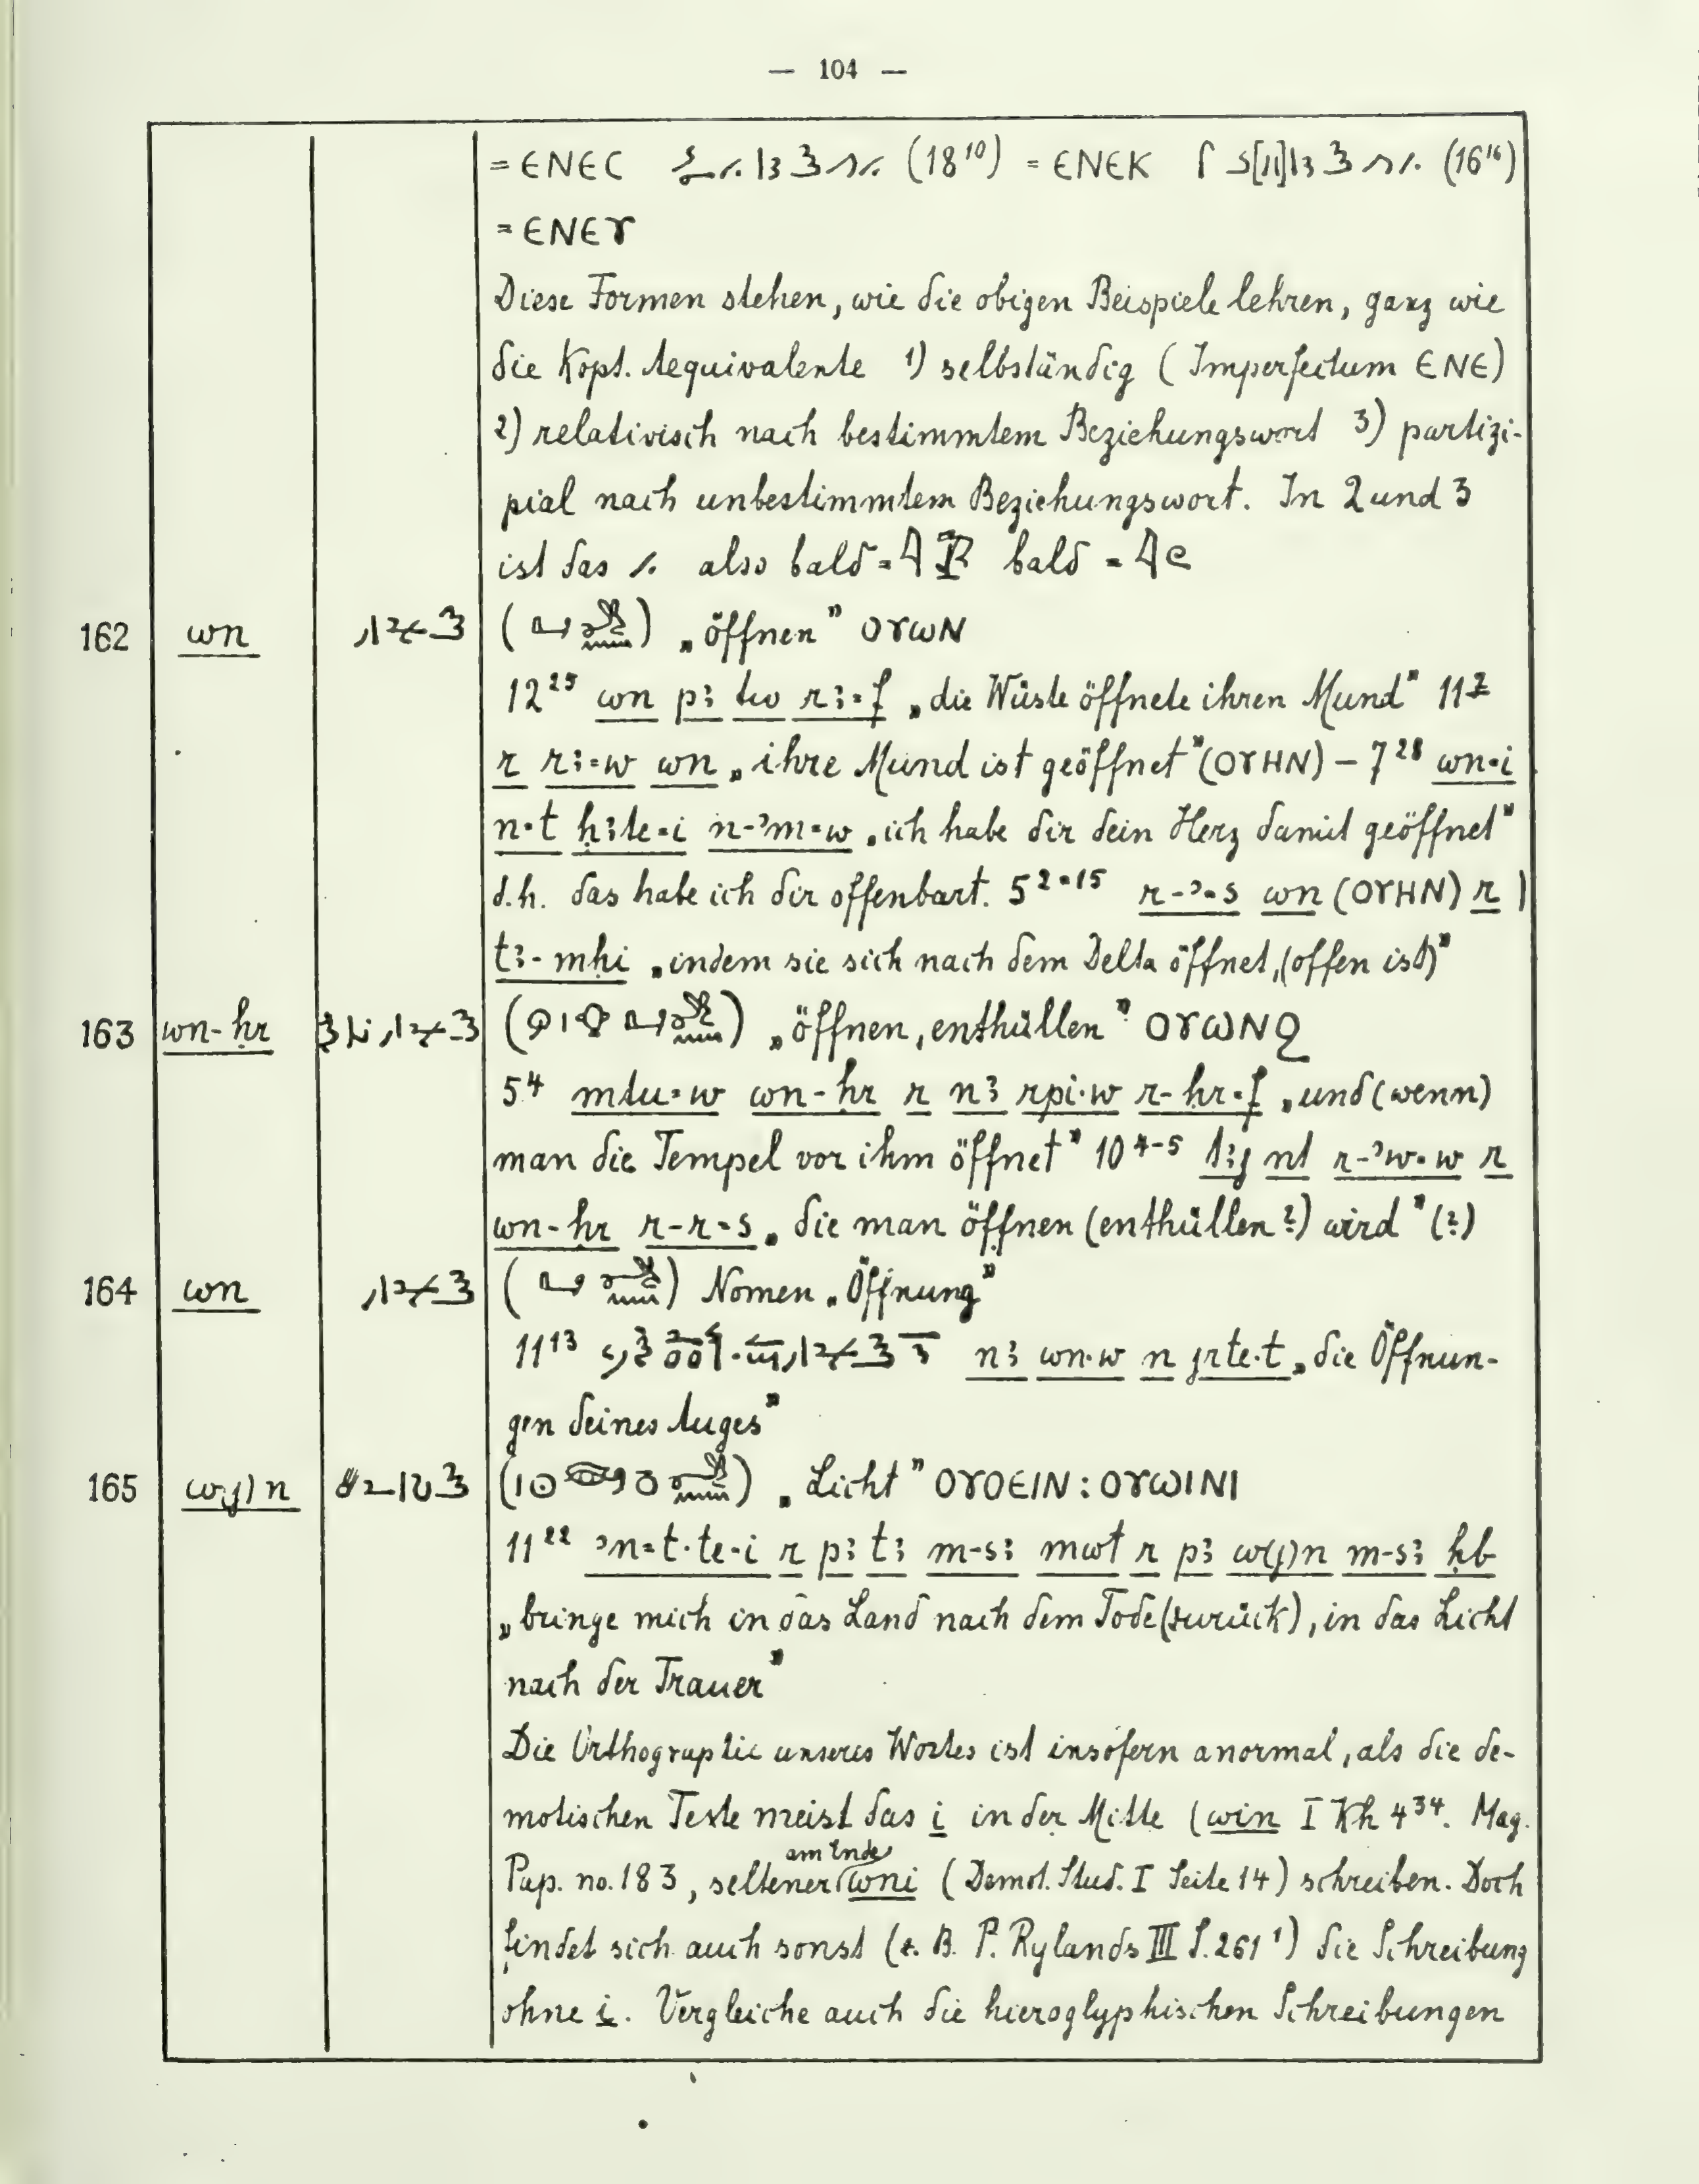 — 104 —
= ⲈⲚⲈⲤ (18¹⁰) = ⲈⲚⲈⲔ (16¹⁶)
= ⲈⲚⲈⲨ
Diese Formen stehen, wie die obigen Beispiele lehren, ganz wie
die kopt. Aequivalente 1) selbständig (Imperfectum ⲈⲚⲈ)
2) relativisch nach bestimmtem Beziehungswort 3) partizi-
pial nach unbestimmtem Beziehungswort. In 2 und 3
ist das also bald = bald =
162 wn ( ) „öffnen" ⲞⲨⲰⲚ
12²⁵ wn pꜣ tw rꜣ=f „die Wüste öffnete ihren Mund" 11
r rꜣ=w wn „ihre Mund ist geöffnet" (ⲞⲨⲎⲚ) – 7²⁸ wn·i
n·t ḥꜣte=i n-ʾm=w „ich habe dir dein Herz damit geöffnet"
d.h. das habe ich dir offenbart. 5²⁼¹⁵ r-ʾ=s wn (ⲞⲨⲎⲚ) r
tꜣ-mḥi „indem sie sich nach dem Delta öffnet, (offen ist)"
163 wn-ḥr ( ) „öffnen, enthüllen" ⲞⲨⲰⲚϨ
5⁴ mtu=w wn-ḥr r nꜣ rpi·w r-ḥr=f „und (wenn)
man die Tempel vor ihm öffnet" 10⁴⁻⁵ nt r-ʾw=w r
wn-ḥr r-r=s „die man öffnen (enthüllen?) wird" (?)
164 wn ( ) Nomen „Öffnung"
11¹³ nꜣ wn·w n jrte·t „die Öffnun-
gen deines Auges"
165 w(j)n ( ) „Licht" ⲞⲨⲞⲈⲒⲚ : ⲞⲨⲰⲒⲚⲒ
11²² ʾn=t·te=i r pꜣ tꜣ m-sꜣ mwt r pꜣ w(j)n m-sꜣ ḥb
„bringe mich in das Land nach dem Tode (zurück), in das Licht
nach der Trauer"
Die Orthographie unseres Wortes ist insofern anormal, als die de-
motischen Texte meist das i in der Mitte (win I Kh 4³⁴. Mag.
Pap. no. 183, seltener am Ende wni (Demot. Stud. I Seite 14) schreiben. Doch
findet sich auch sonst (z. B. P. Rylands III S. 261¹) die Schreibung
ohne i. Vergleiche auch die hieroglyphischen Schreibungen